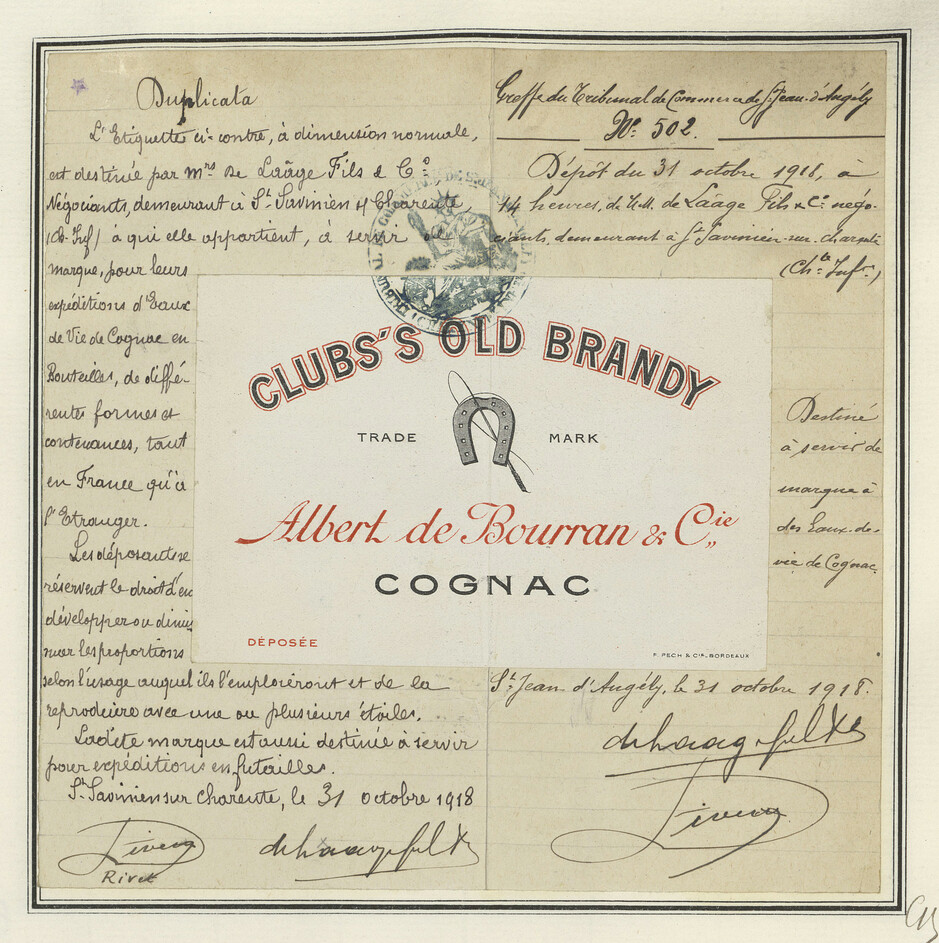 Duplicata
L'Etiquette ci-contre, à dimension normale,
est destinée par Mrs De Laâge Fils & Co
Négociants, demeurant à St Savinien s/ Charente,
(Ch. Inf) à qui elle appartient, à servir de
marque, pour leurs
expéditions d'Eaux
de Vie de Cognac en
Bouteilles, de diffé-
rentes formes et
contenances, tant
en France qu'à
l'Etranger.
Les déposants se
réservent le droit d'en
développer ou dimi
nuer les proportions
selon l'usage auquel ils l'emploieront et de la
reproduire avec une ou plusieurs étoiles.
Ladite marque est aussi destinée à servir
pour expéditions en futailles.
St Savinien sur Charente, le 31 octobre 1918
Rivet
Greffe du Tribunal de Commerce de St Jean-d'Angély
No: 502.
Dépôt du 31 octobre 1918, à
14 heures, de M.M. de Laâge Fils & Co négo-
ciants, demeurant à St Savinien-sur-Charente
(Chte Infre)
Destiné
à servir de
marque à
des Eaux-de-
vie de Cognac.
St Jean d'Angély, le 31 octobre 1918.
CLUBS'S OLD BRANDY
TRADE MARK
Albert de Bourran & Cie
COGNAC
DÉPOSÉE
F. PECH & Cie. BORDEAUX